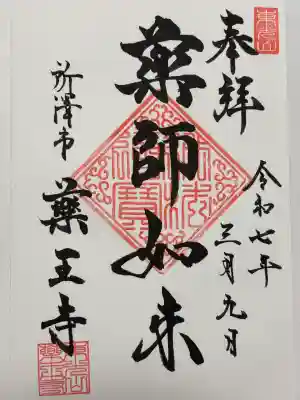 奉拝
令和七年
三月九日
薬師如来
所澤市
薬王寺